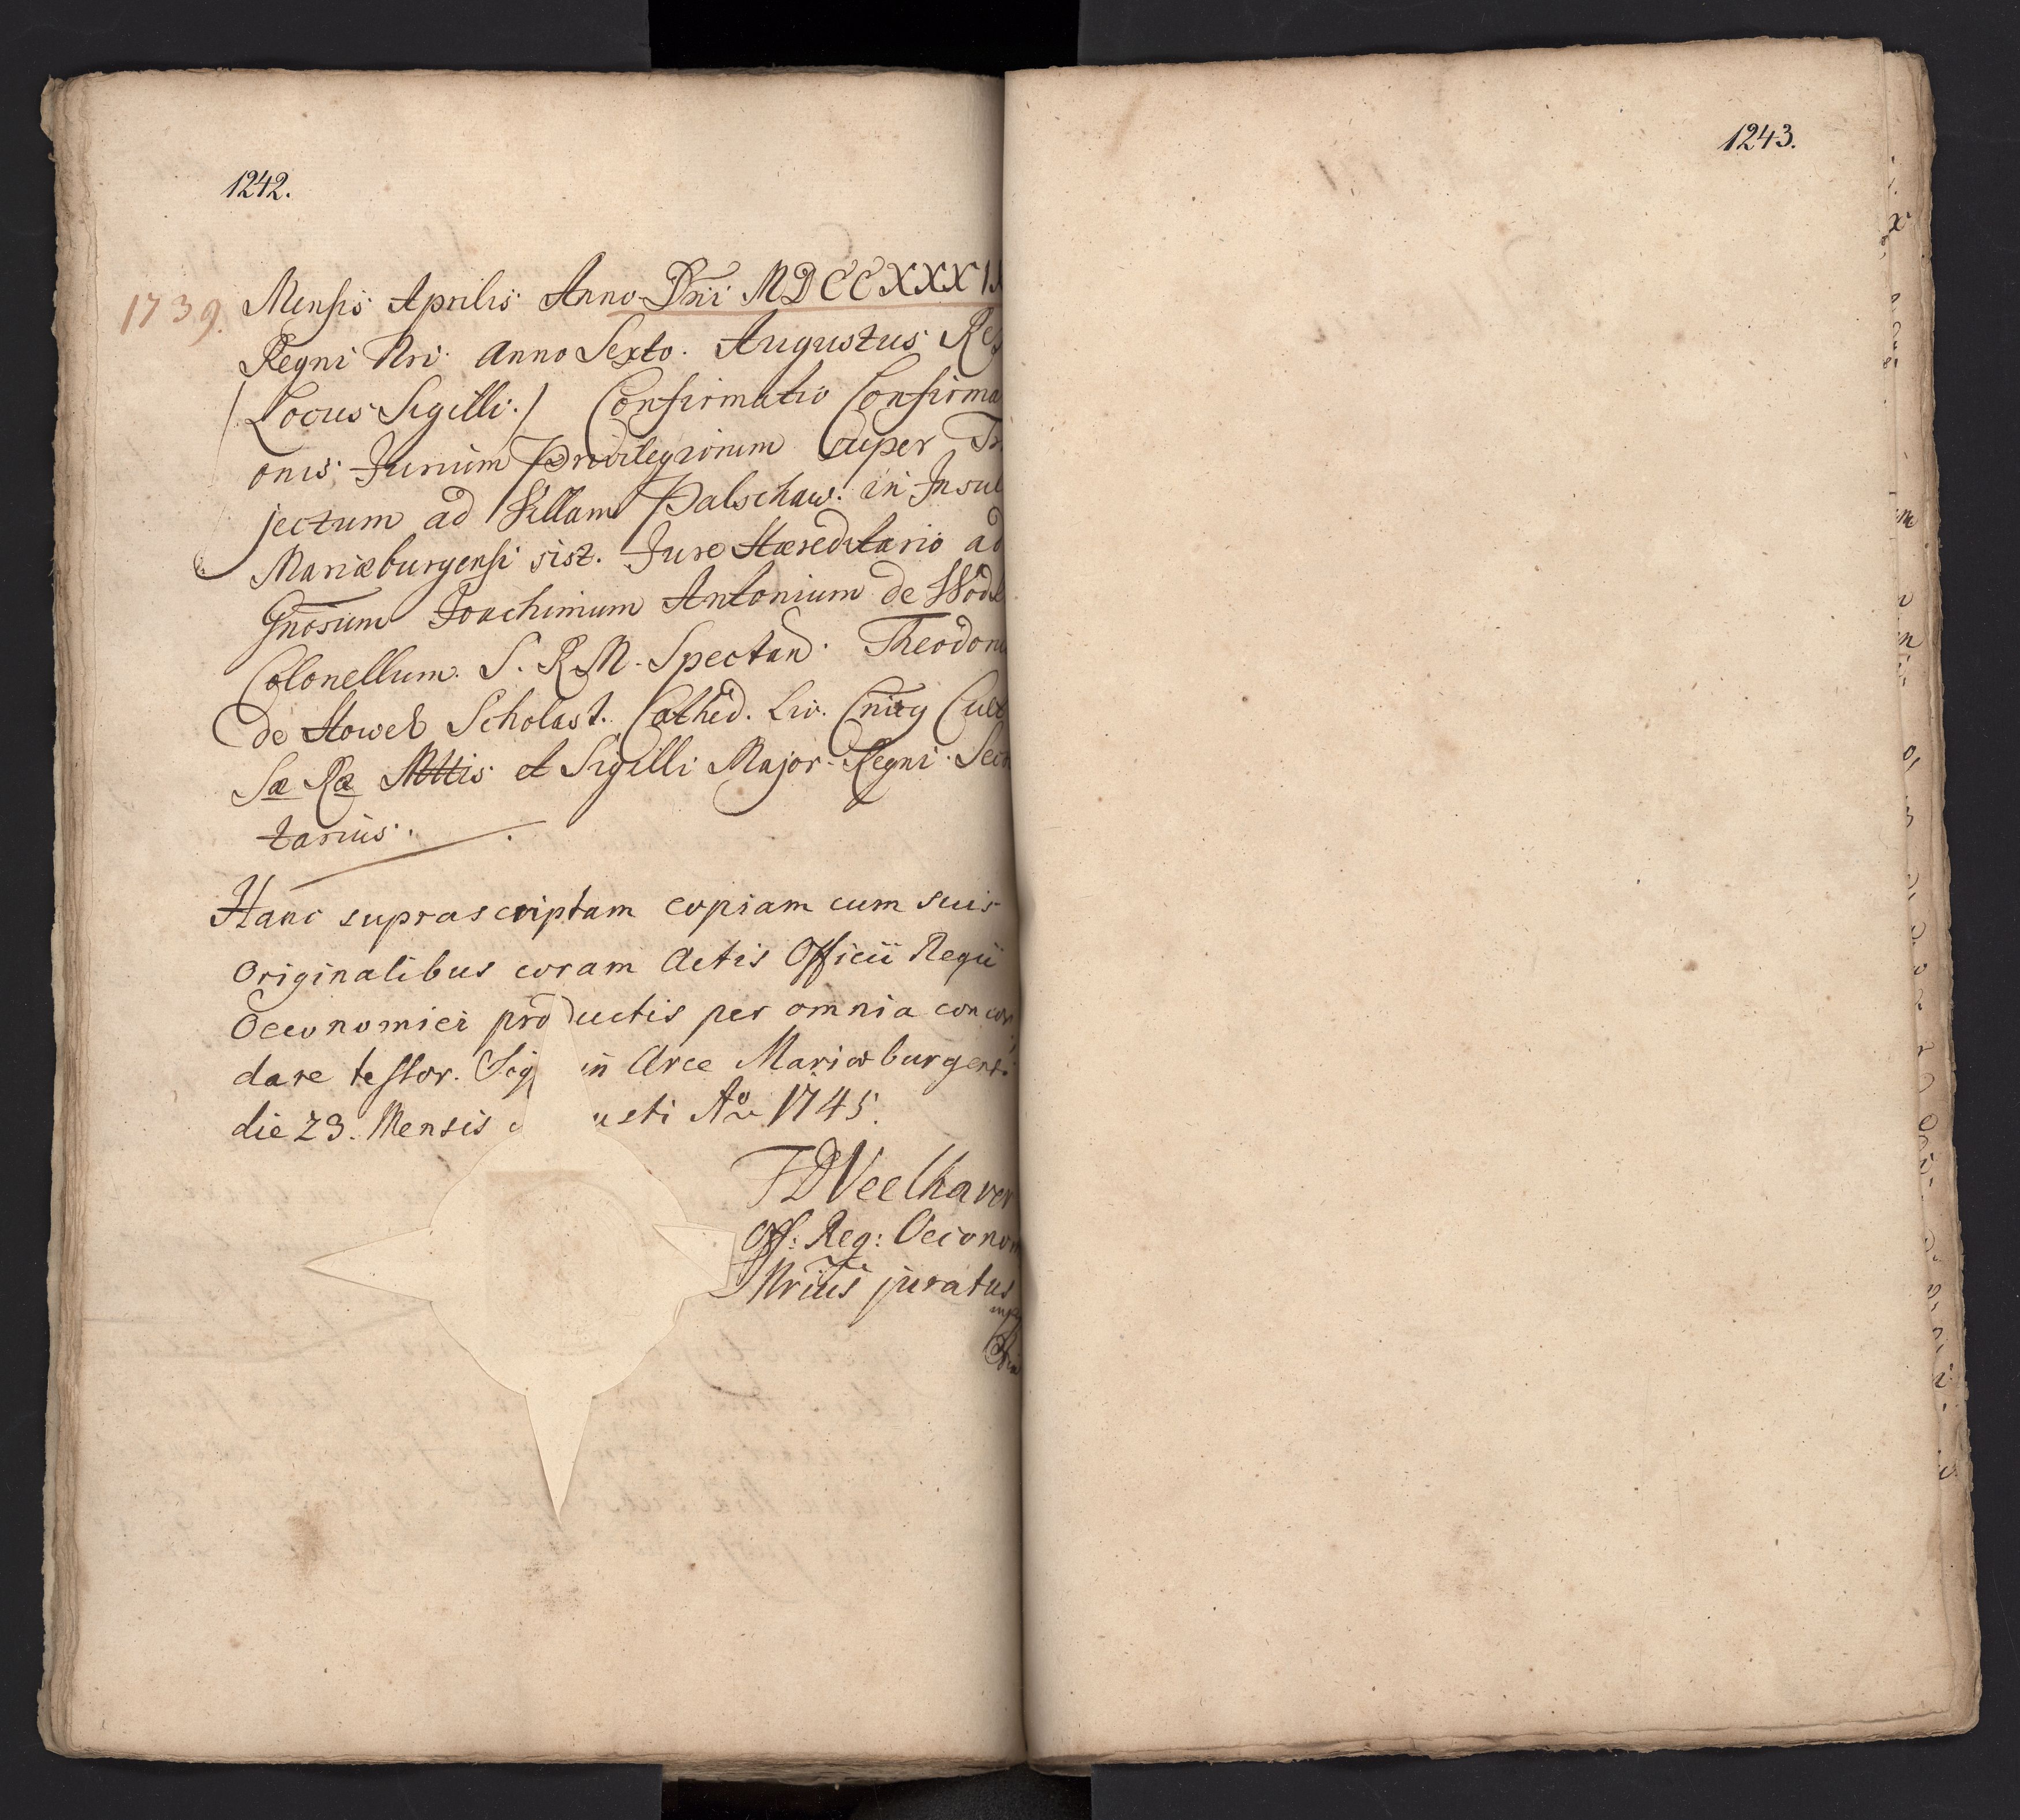 1242.
1739. Mensis Aprilis Anno Dni MDCCXXXIX
Regni Nri Anno Sexto. Augustus Rex
/Locus Sigilli./ Confirmatio Confirma
onis Jurium Privilegiorum Super Tr
jectum ad Villam Palschaw in Insul
Mariæburgensi sist. Jure Hæreditario ad
Gnosum Joachimum Antonium de
Colonellum S. R. M. Spectand. Theodorus
de Scholast. Cathed. Liv.
Sæ Ræ Mttis et Sigilli Major Regni Secre
tarius.
Hanc suprascriptam copiam cum suis
Originalibus coram Actis Officii Regii
Oeconomici productis per omnia concor
dare testor. Sig in Arce Mariæburgensi
die 23. Mensis usti Ao 1745.
Off: Reg: Oeconom
Nrius juratus
mpp
1243.